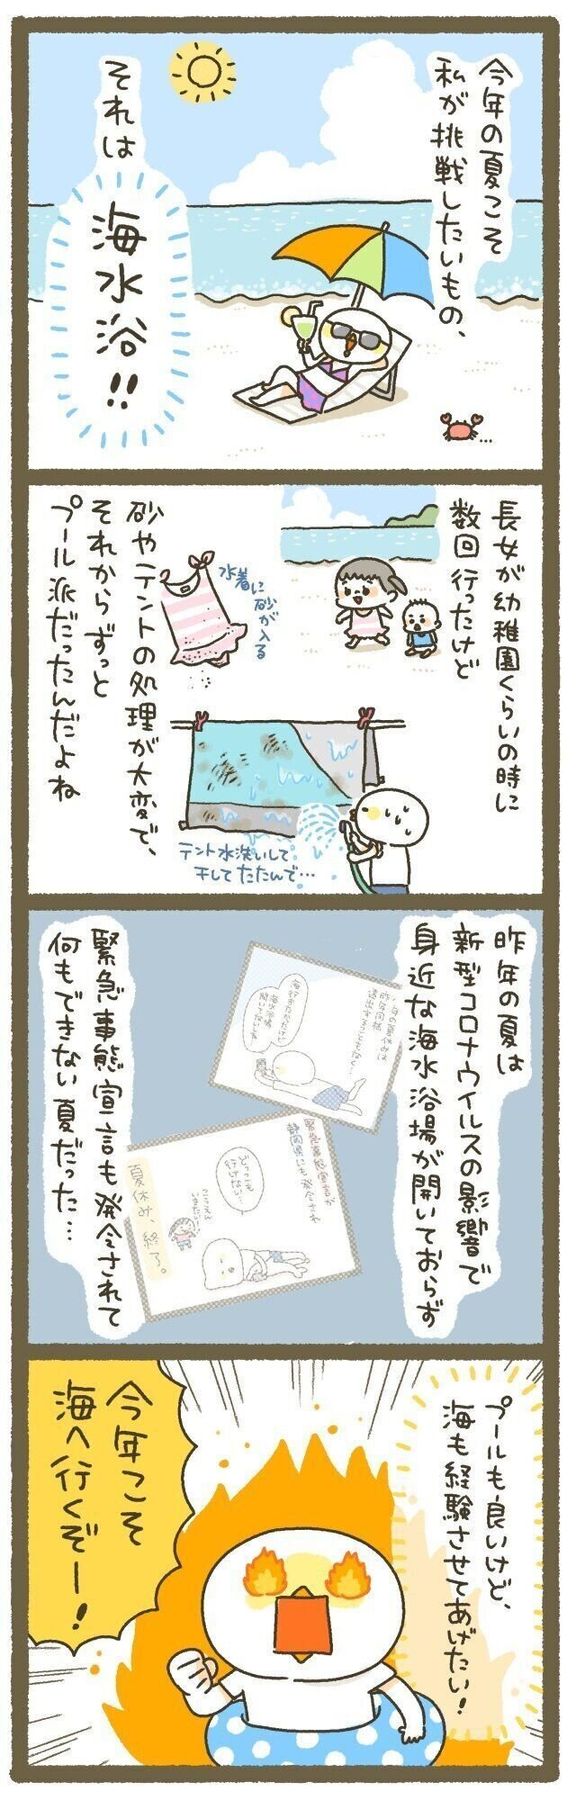 今年の夏こそ
私が挑戦したいもの、
それは
海水浴!!
長女が幼稚園くらいの時に
数回行ったけど
水着に
砂が
入る
砂やテントの処理が大変で、
それからずっと
プール派だったんだよね
テント水洗いして
干してたたんで…
昨年の夏は
新型コロナウイルスの影響で
身近な海水浴場が開いておらず
緊急事態宣言が
静岡県にも発令され
どこっこも
行けない!
夏休み、終了。
緊急事態宣言も発令されて
何もできない夏だった…
プールも良いけど、
海も経験させてあげたい!
今年こそ
海へ行くぞー!